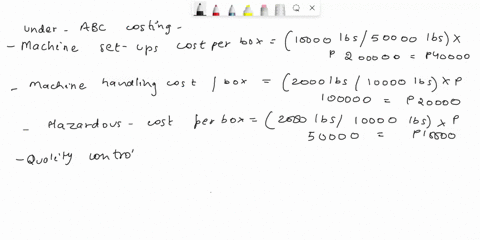 under- ABC costing-
- Machine set-ups cost per box = (10000 lbs / 50000 lbs) X
P 200000 = P40000
- Machine handling cost / box = (2000 lbs / 10000 lbs) x P
100000 = P20000
- Hazardous- cost per box = (2000 lbs / 10000 lbs) x P
50000 =
- Quality contro